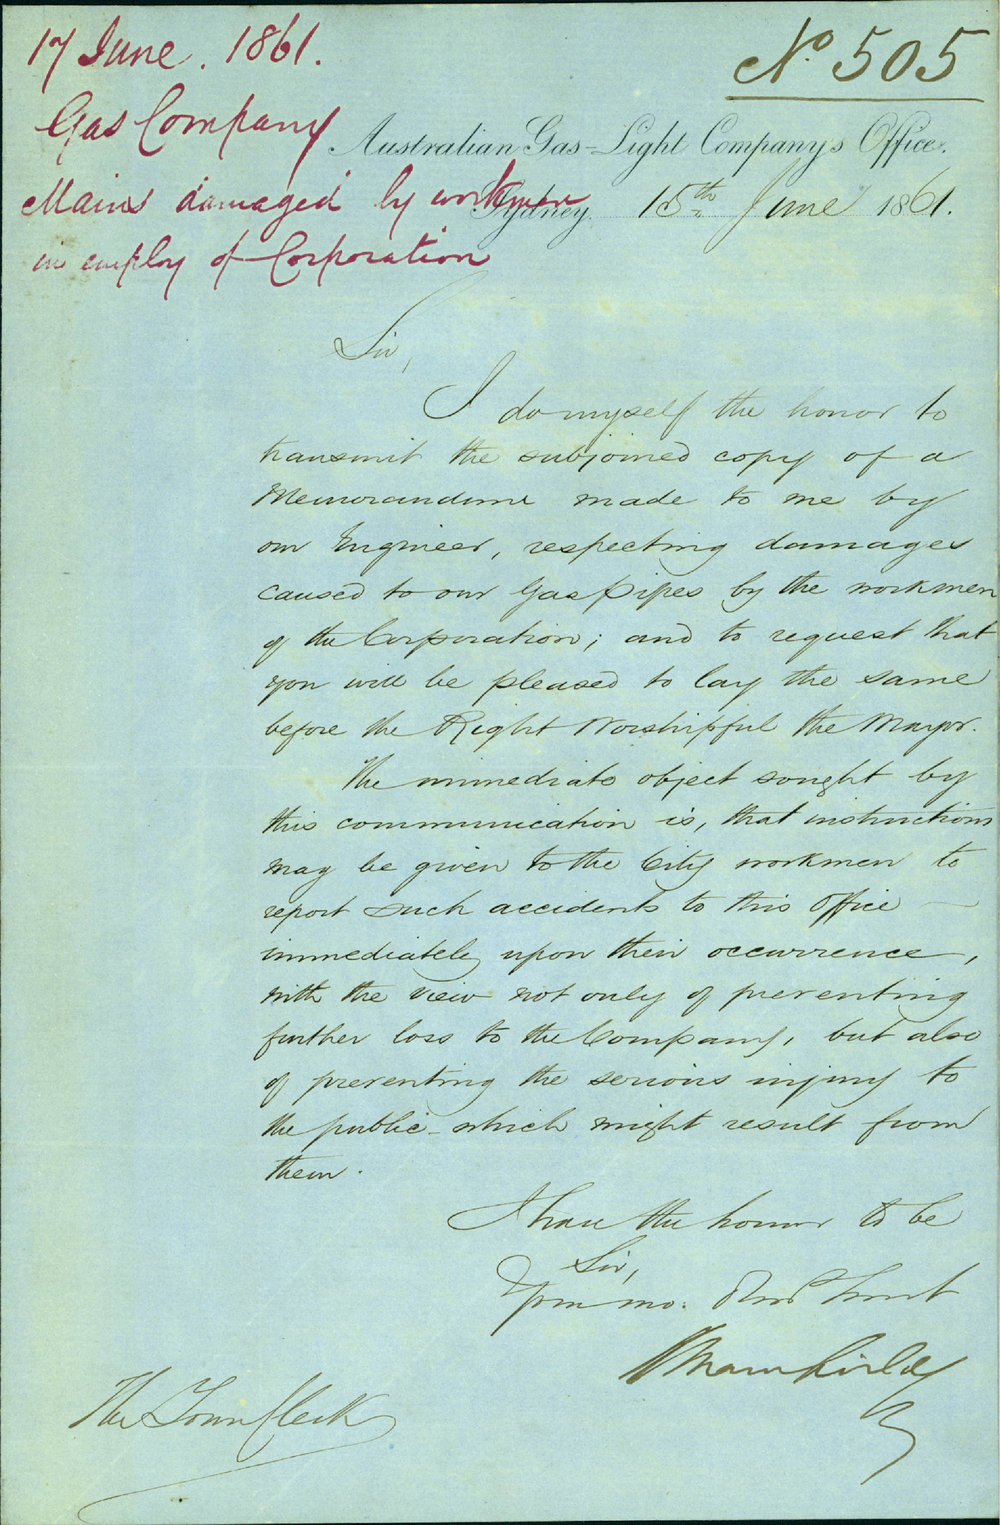 17 June. 1861.
No. 505
Gas Company
Australian Gas-Light Company's Office.
Mains damaged by workmen
Sydney 15th June 1861.
in employ of Corporation
Sir,
I do myself the honor to
transmit the subjoined copy of a
Memorandum made to me by
our Engineer, respecting damages
caused to our Gas Pipes by the workmen
of the Corporation; and to request that
you will be pleased to lay the same
before the Right Worshipful the Mayor.
The immediate object sought by
this communication is, that instructions
may be given to the City workmen to
report such accidents to this Office —
immediately upon their occurrence,
with the view not only of preventing
further loss to the Company, but also
of preventing the serious injury to
the public which might result from
them.
I have the honor to be
Sir,
Your mo. Obdt Servt
Mansfield
The Town Clerk